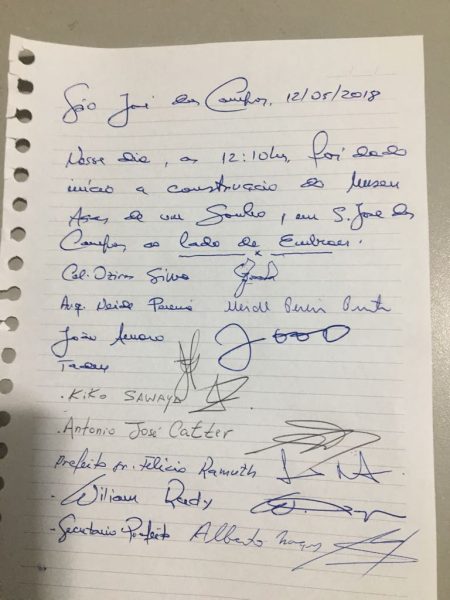 São José dos Campos, 12/05/2018
Nesse dia, as 12:10hs, foi dado
início a construção do Museu
Asas de um Sonho, em S. José dos
Campos ao lado da Embraer.
Cel. Ozires Silva
Arq. Neide Pereira Neide Pereira Pinto
João Amaro
Tadeu
- KIKO SAWAYA
- Antonio José Catter
Prefeito Sr. Felicio Ramuth
- Wiliam Rady
- Secretario Prefeito Alberto